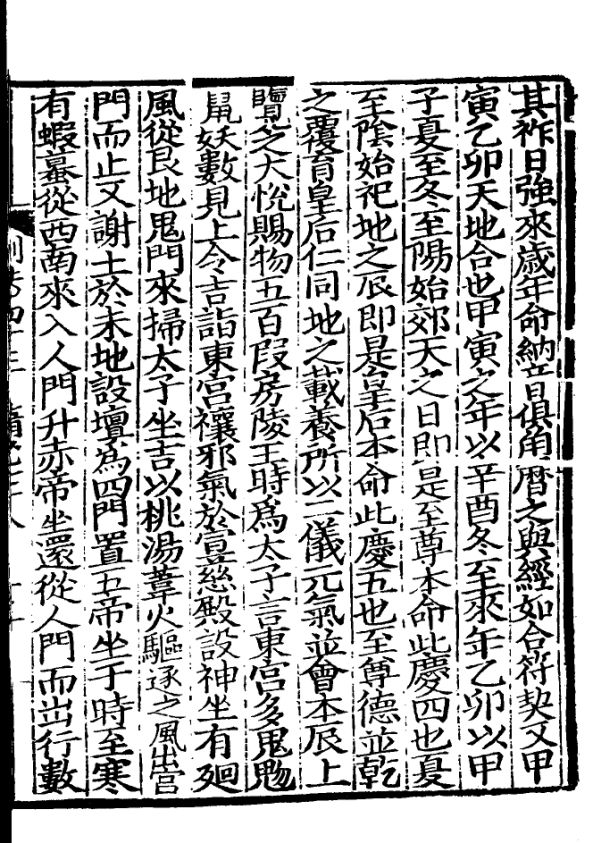 其祚日強來歲年命納音俱角曆之與經如合符契又甲
寅乙卯天地合也甲寅之年以辛酉冬至來年乙卯以甲
子夏至冬至陽始郊天之日即是至尊本命此慶四也夏
至陰始祀地之辰即是皇后本命此慶五也至尊德並乾
之覆育皇后仁同地之載養所以二儀元氣並會本辰上
覽之大悅賜物五百段房陵王時為太子言東宮多鬼魅
鼠妖數見上令吉詣東宮禳邪氣於宣慈殿設神坐有廻
風從艮地鬼門來掃太子坐吉以桃湯葦火驅逐之風出宮
門而止又謝土於未地設壇為四門置五帝坐于時至寒
有蝦蟇從西南來入人門升赤帝坐還從人門而出行數